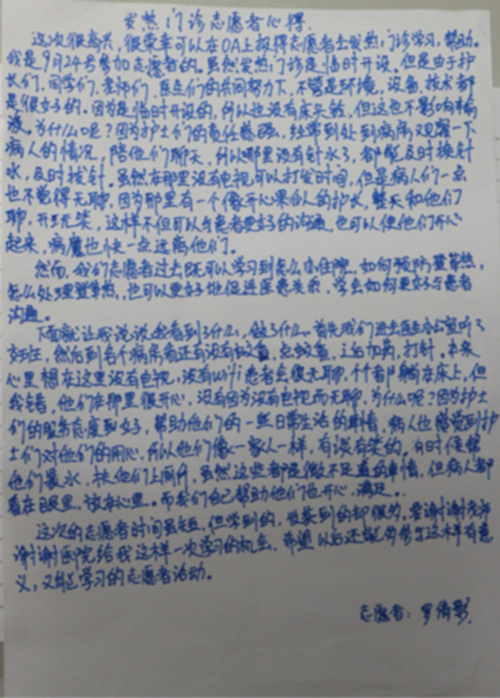 发热门诊志愿者心得.
这次很高兴,很荣幸可以在OA上报得志愿者去发热门诊学习,帮助。
我是9月24号参加志愿者的。虽然发热门诊是临时开设,但是由于护
长们,同学们,老师们,医生们的共同努力下,不管是环境,设备,技术都
是很好的。因为是临时开设的,所以也没有床头铃,但这也不影响输
液。为什么呢?因为护士们的责任感强,经常到处到病房观察一下
病人的情况,陪他们聊天,所以哪里没有针水了,都能及时换针
水,及时拔针。虽然在那里没有电视可以打发时间,但是病人们一点
也不觉得无聊,因为那里有一个像开心果的人的护长,整天和他们
聊,开玩笑,这样不但可以与患者更好的沟通,也可以使他们开心
起来,病魔也快一点远离他们。
然而,我们志愿者过去既可以学习到怎么办住院,如何预防登革热,
怎么处理登革热,也可以更好地促进医患关系,学会如何更好与患者
沟通。
下面就让我说说我看到了什么,做了什么。首先我们进去医生办公室听了
交班,然后到各个病房看还有没有蚊查,点蚊查,主治加药,打针。本来
心里想在这里没有电视,没有wifi患者会很无聊,个个都躺在床上,但
我错,他们在那里很开心,没有因为没有电视而无聊,为什么呢?因为护士
们的服务态度好,帮助他们的一些日常生活的事情,病人也感觉到护
士们对他们的用心,所以他们像一家人一样,有谈有笑的。有时候帮
他们装水,扶他们上厕所,虽然这些都是微不足道的事情,但病人都
看在眼里,放在心里。而我们自己帮助他们也开心,满足。
这次的志愿者时间虽短,但学到的,收获到的却很多,要谢谢老师
谢谢医院给我这样一次学习的机会,希望以后还能多参与这样有意
义,又能学习的志愿者活动。
志愿者:罗倩影